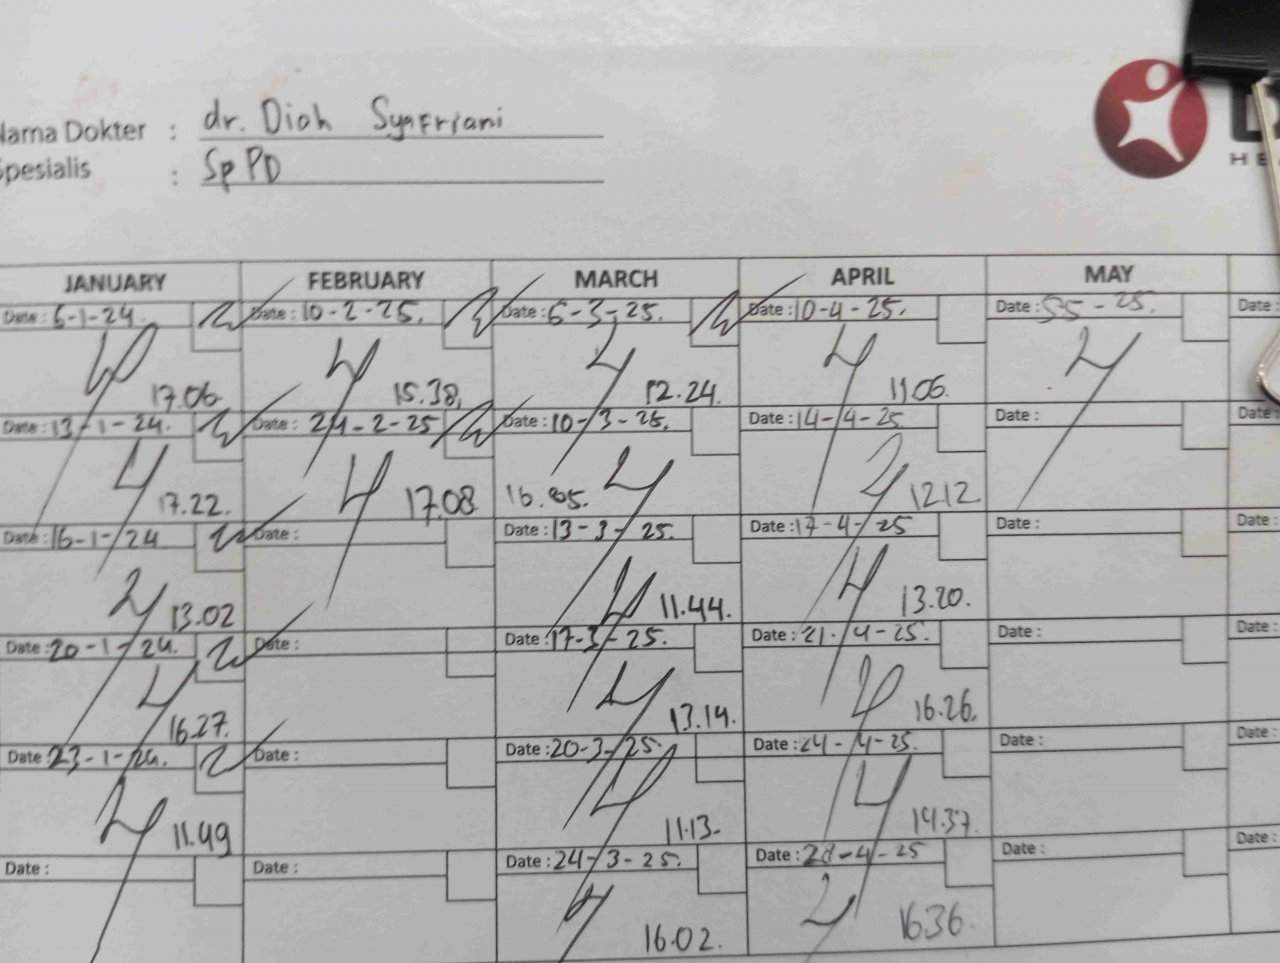 Nama Dokter : dr. Diah Syafriani
Spesialis : SpPD
HE
JANUARY FEBRUARY MARCH APRIL MAY
Date : 6-1-24. Date : 10-2-25. Date : 6-3-25. Date : 10-4-25. Date : 5-5-25. Date :
17.06 15.38. 12.24. 11.06.
Date : 13-1-24. Date : 24-2-25 Date : 10-3-25. Date : 14-4-25 Date : Date :
17.22. 17.08 16.05. 12.12
Date : 16-1-24 Date : Date : 13-3-25. Date : 17-4-25 Date : Date :
13.02 11.44. 13.20.
Date : 20-1-24. Date : Date : 17-3-25. Date : 21-4-25. Date : Date :
16.27. 13.14. 16.26.
Date : 23-1-24. Date : Date : 20-3-25. Date : 24-4-25. Date : Date :
11.49 11.13. 14.37.
Date : Date : Date : 24-3-25. Date : 28-4-25 Date : Date :
16.02. 16.36.